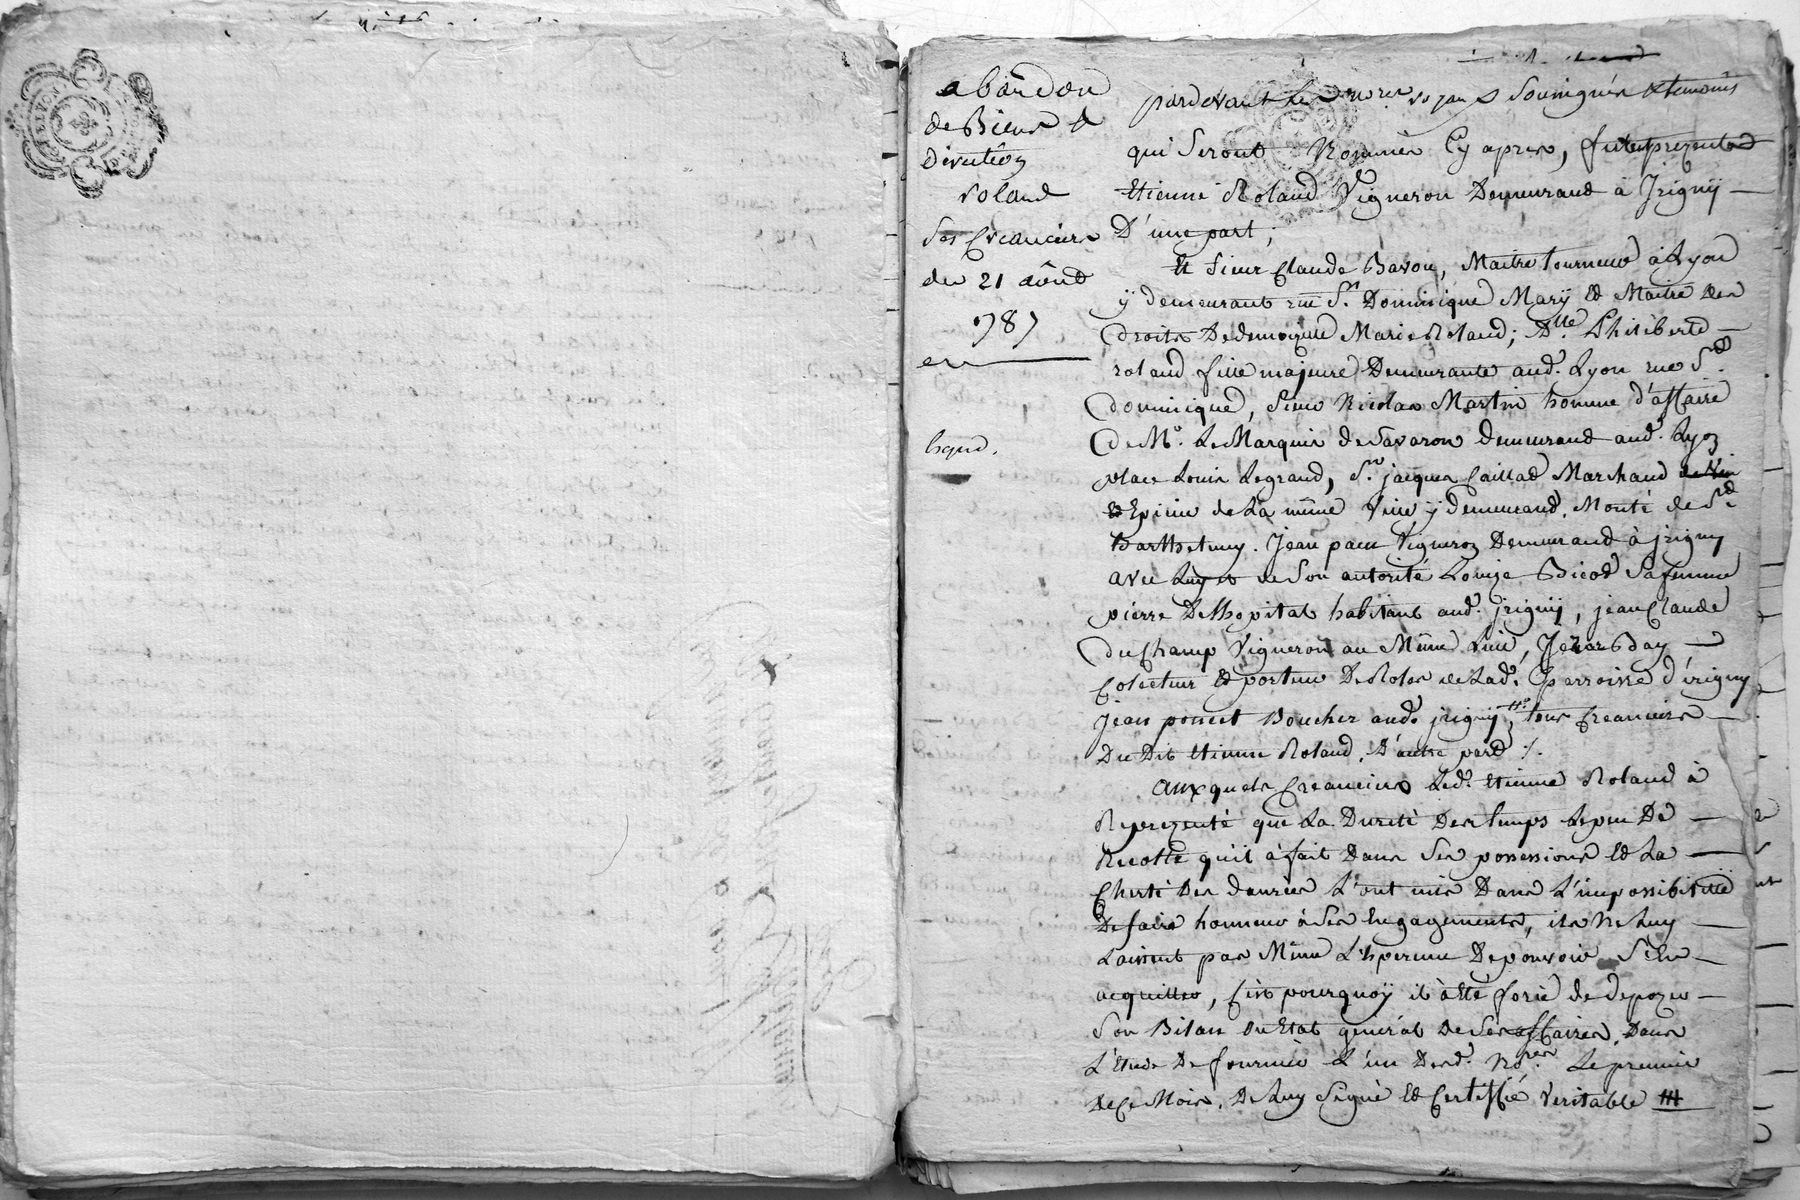 abandon
de Biens &
direction
roland
Ses Creanciers
du 21 août
1787
Expd.
pardevant les no.res royaux Soussignés & temoins
qui Seront Nommés Cy apres, fut present
Etienne Roland Vigneron Demeurand à Jrigny
D'une part;
Et Sieur Claude Bavou, Maitre tourneur à Lyon
ÿ demeurant rue St. Dominique Marÿ Et Maitre des
droits De demoizelle Marie Roland; Dlle. Philiberte
roland fille majeure Demeurante aud. Lyon rue St.
dominique, Sieur Nicolas Martin homme d'affaire
De Mr. Le Marquis de Savaron demeurand aud. Lyon
place Louis Legrand, Sr. jacques Caillad Marchand
Epicier de La même Ville ÿ Demeurand, Monté de St.
Barthelemy. Jean paen Vigneron Demeurand à jrigny
avec Luy & de Son autorité Louize Bicod Sa femme
pierre Delhopital habitant aud. jrigny, jean Claude
du Champ Vigneron au Même Lieu, Day
Colecteur Et porteur De Roles de Lad. parroisse d'irigny
Jean poncet Boucher aud. jrigny, tous Creanciers
Du Dit Etienne Roland, D'autre pard ./.
Auxquels Creanciers Led. Etienne Roland à
Reprezenté que La Dureté Des temps Le peu De
Recolte qu'il à fait Dans Ses possessions Et La
Cherté Des danrées L'ont mis Dans L'impossibilité
De faire honneur à Ses Engagements, ils Ne Luy
Laissent pas Même L'Esperence De pouvoir S'En
acquitter, C'est pourquoÿ il à Eté forcé de depozer
Son Bilan ou Etat général de Ses affaires, Dans
L'Etude De fournier L'un Desd. Nores. Le premier
De Ce Mois, De Luy Signé Et Certiffié Veritable